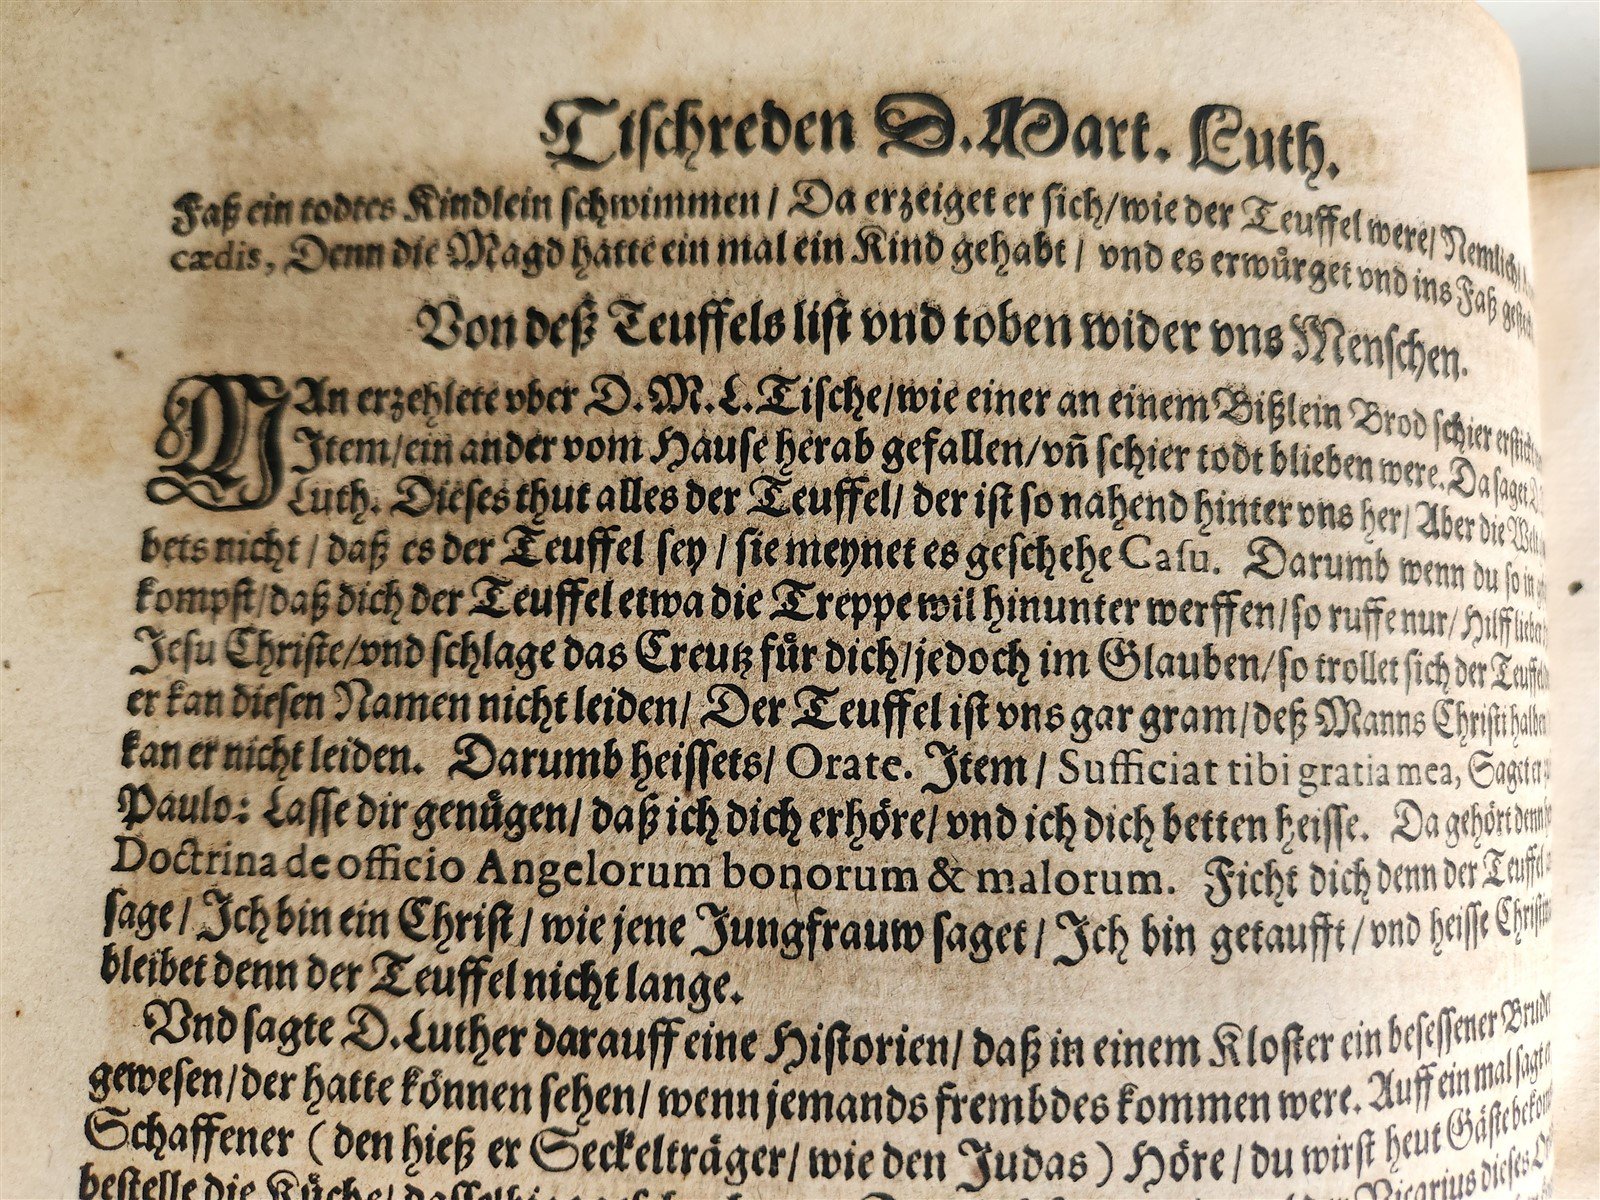 Tischreden D. Mart. Luth.
Faß ein todtes Kindlein schwimmen / Da erzeiget er sich / wie der Teuffel were / Nemlich /
cædis, Denn die Magd hatte ein mal ein Kind gehabt / vnd es erwůrget vnd ins Faß
Von deß Teuffels list vnd toben wider vns Menschen.
MAn erzehlete vber D. M. L. Tische / wie einer an einem Bißlein Brod schier
Item / ein ander vom Hause herab gefallen / vñ schier todt blieben were. Da saget
Luth. Dieses thut alles der Teuffel / der ist so nahend hinter vns her / Aber die Welt
bets nicht / daß es der Teuffel sey / sie meynet es geschehe Casu. Darumb wenn du so in
kompst / daß dich der Teuffel etwa die Treppe wil hinunter werffen / so ruffe nur / Hilff lieber
Jesu Christe / vnd schlage das Creutz fůr dich / jedoch im Glauben / so trollet sich der Teuffel
er kan diesen Namen nicht leiden / Der Teuffel ist vns gar gram / deß Manns Christi halben
kan er nicht leiden. Darumb heissets / Orate. Item / Sufficiat tibi gratia mea, Saget er
Paulo: Lasse dir genůgen / daß ich dich erhöre / vnd ich dich betten heisse. Da gehört denn
Doctrina de officio Angelorum bonorum & malorum. Ficht dich denn der Teuffel
sage / Ich bin ein Christ / wie jene Jungfrauw saget / Ich bin getaufft / vnd heisse
bleibet denn der Teuffel nicht lange.
Vnd sagte D. Luther darauff eine Historien / daß in einem Kloster ein besessener
gewesen / der hatte können sehen / wenn jemands frembdes kommen were. Auff ein mal sagt
Schaffener ( den hieß er Seckelträger / wie den Judas ) Höre / du wirst heut Gäste
bestelle die Küche / Vicarius dieses